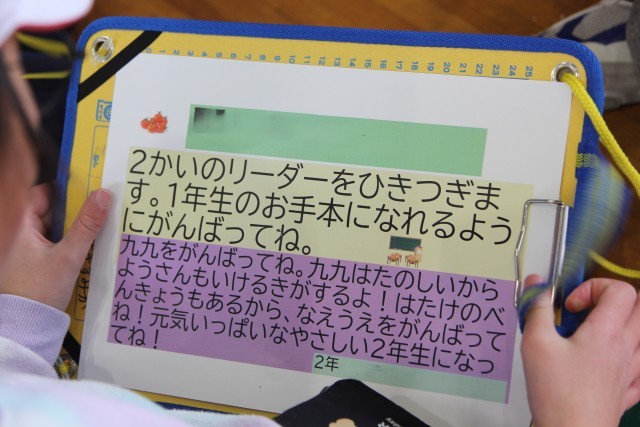 0 1 2 3 4 5 6 7 8 9 10 11 12 13 14 15 16 17 18 19 20 21 22 23 24 25
2かいのリーダーをひきつぎま
す。1年生のお手本になれるよう
にがんばってね。
九九をがんばってね。九九はたのしいから
ようさんもいけるきがするよ！はたけのべ
んきょうもあるから、なえうえをがんばって
ね！元気いっぱいなやさしい2年生になっ
てね！
2年